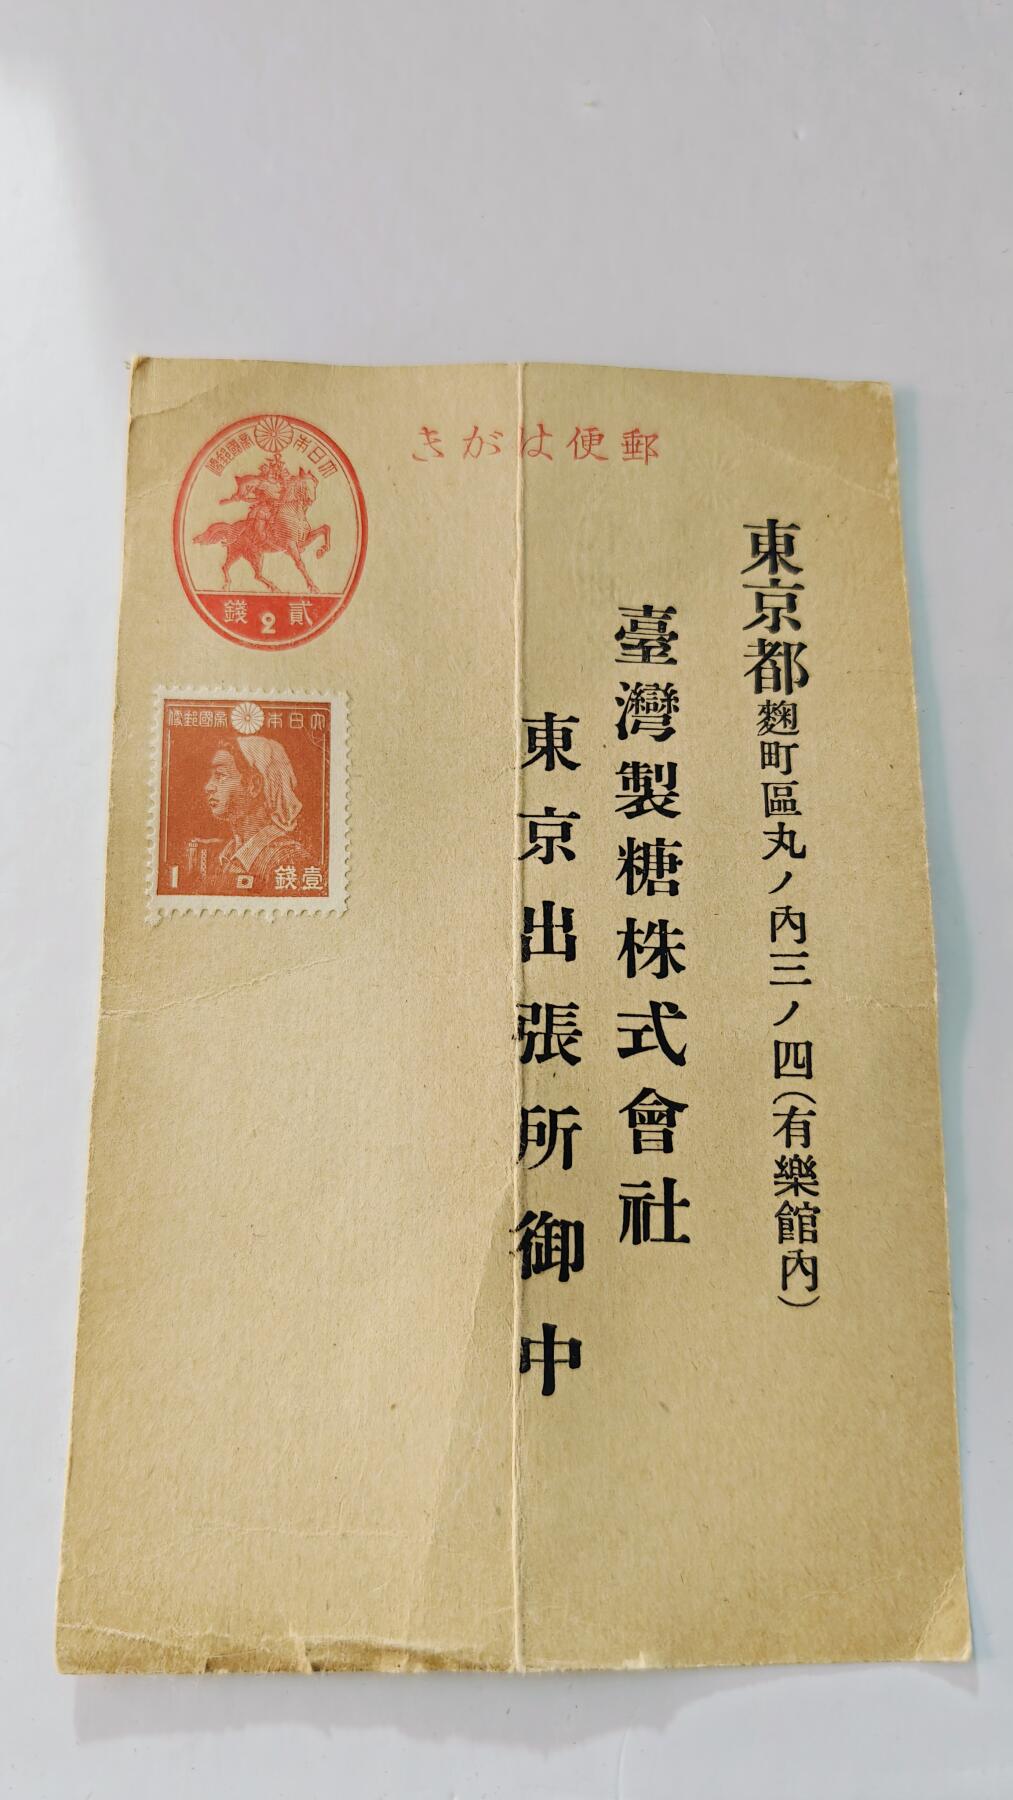 郵便はがき
東京都麴町區丸ノ內三ノ四(有樂館內)
臺灣製糖株式會社
東京出張所御中
大日本帝國郵便
貳2錢
大日本帝國郵便
壹錢
1